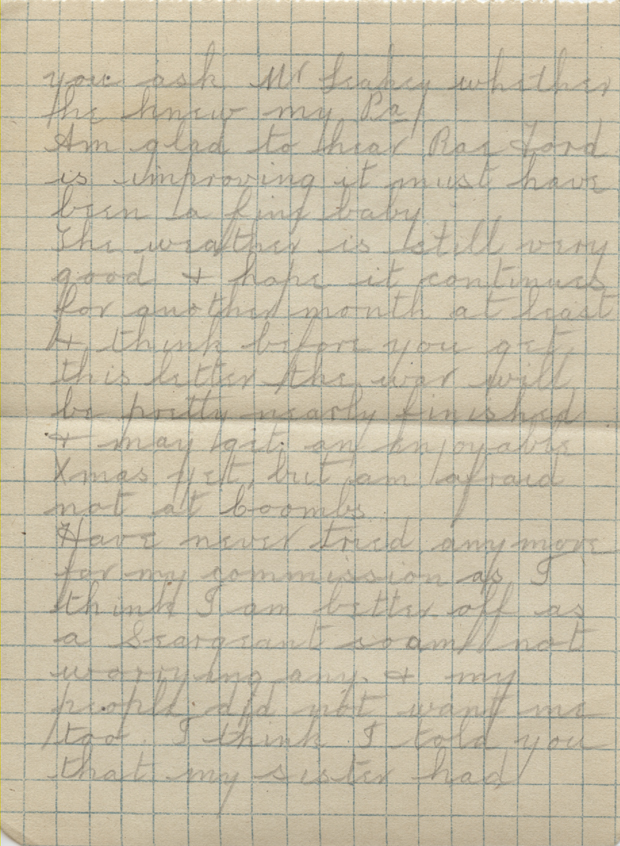 you ask Mr Leahey whether
he knew my Pa
Am glad to hear Rae Ford
is improving it must have
been a fine baby
The weather is still very
good & hope it continues
for another month at least
& think before you get
this letter the war will
be pretty nearly finished
& may get an enjoyable
Xmas yet, but am afraid
not at Coombs
Have never tried anymore
for my commission as I
think I am better off as
a Seargeant so am not
worrying any. & my
people did not want me
too. I think I told you
that my sister had